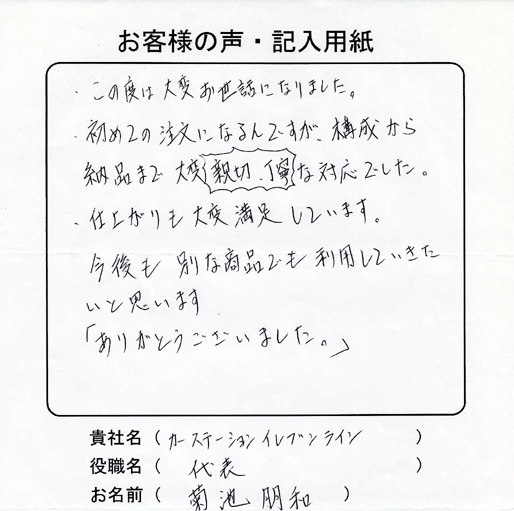 お客様の声・記入用紙
・この度は大変お世話になりました。
・初めての注文になるんですが、構成から
納品まで大変親切、丁寧な対応でした。
・仕上がりも大変満足しています。
今後も別な商品でも利用していきた
いと思います
「ありがとうございました。」
貴社名（カーステーションイレブンライン）
役職名（代表）
お名前（菊池朋和）